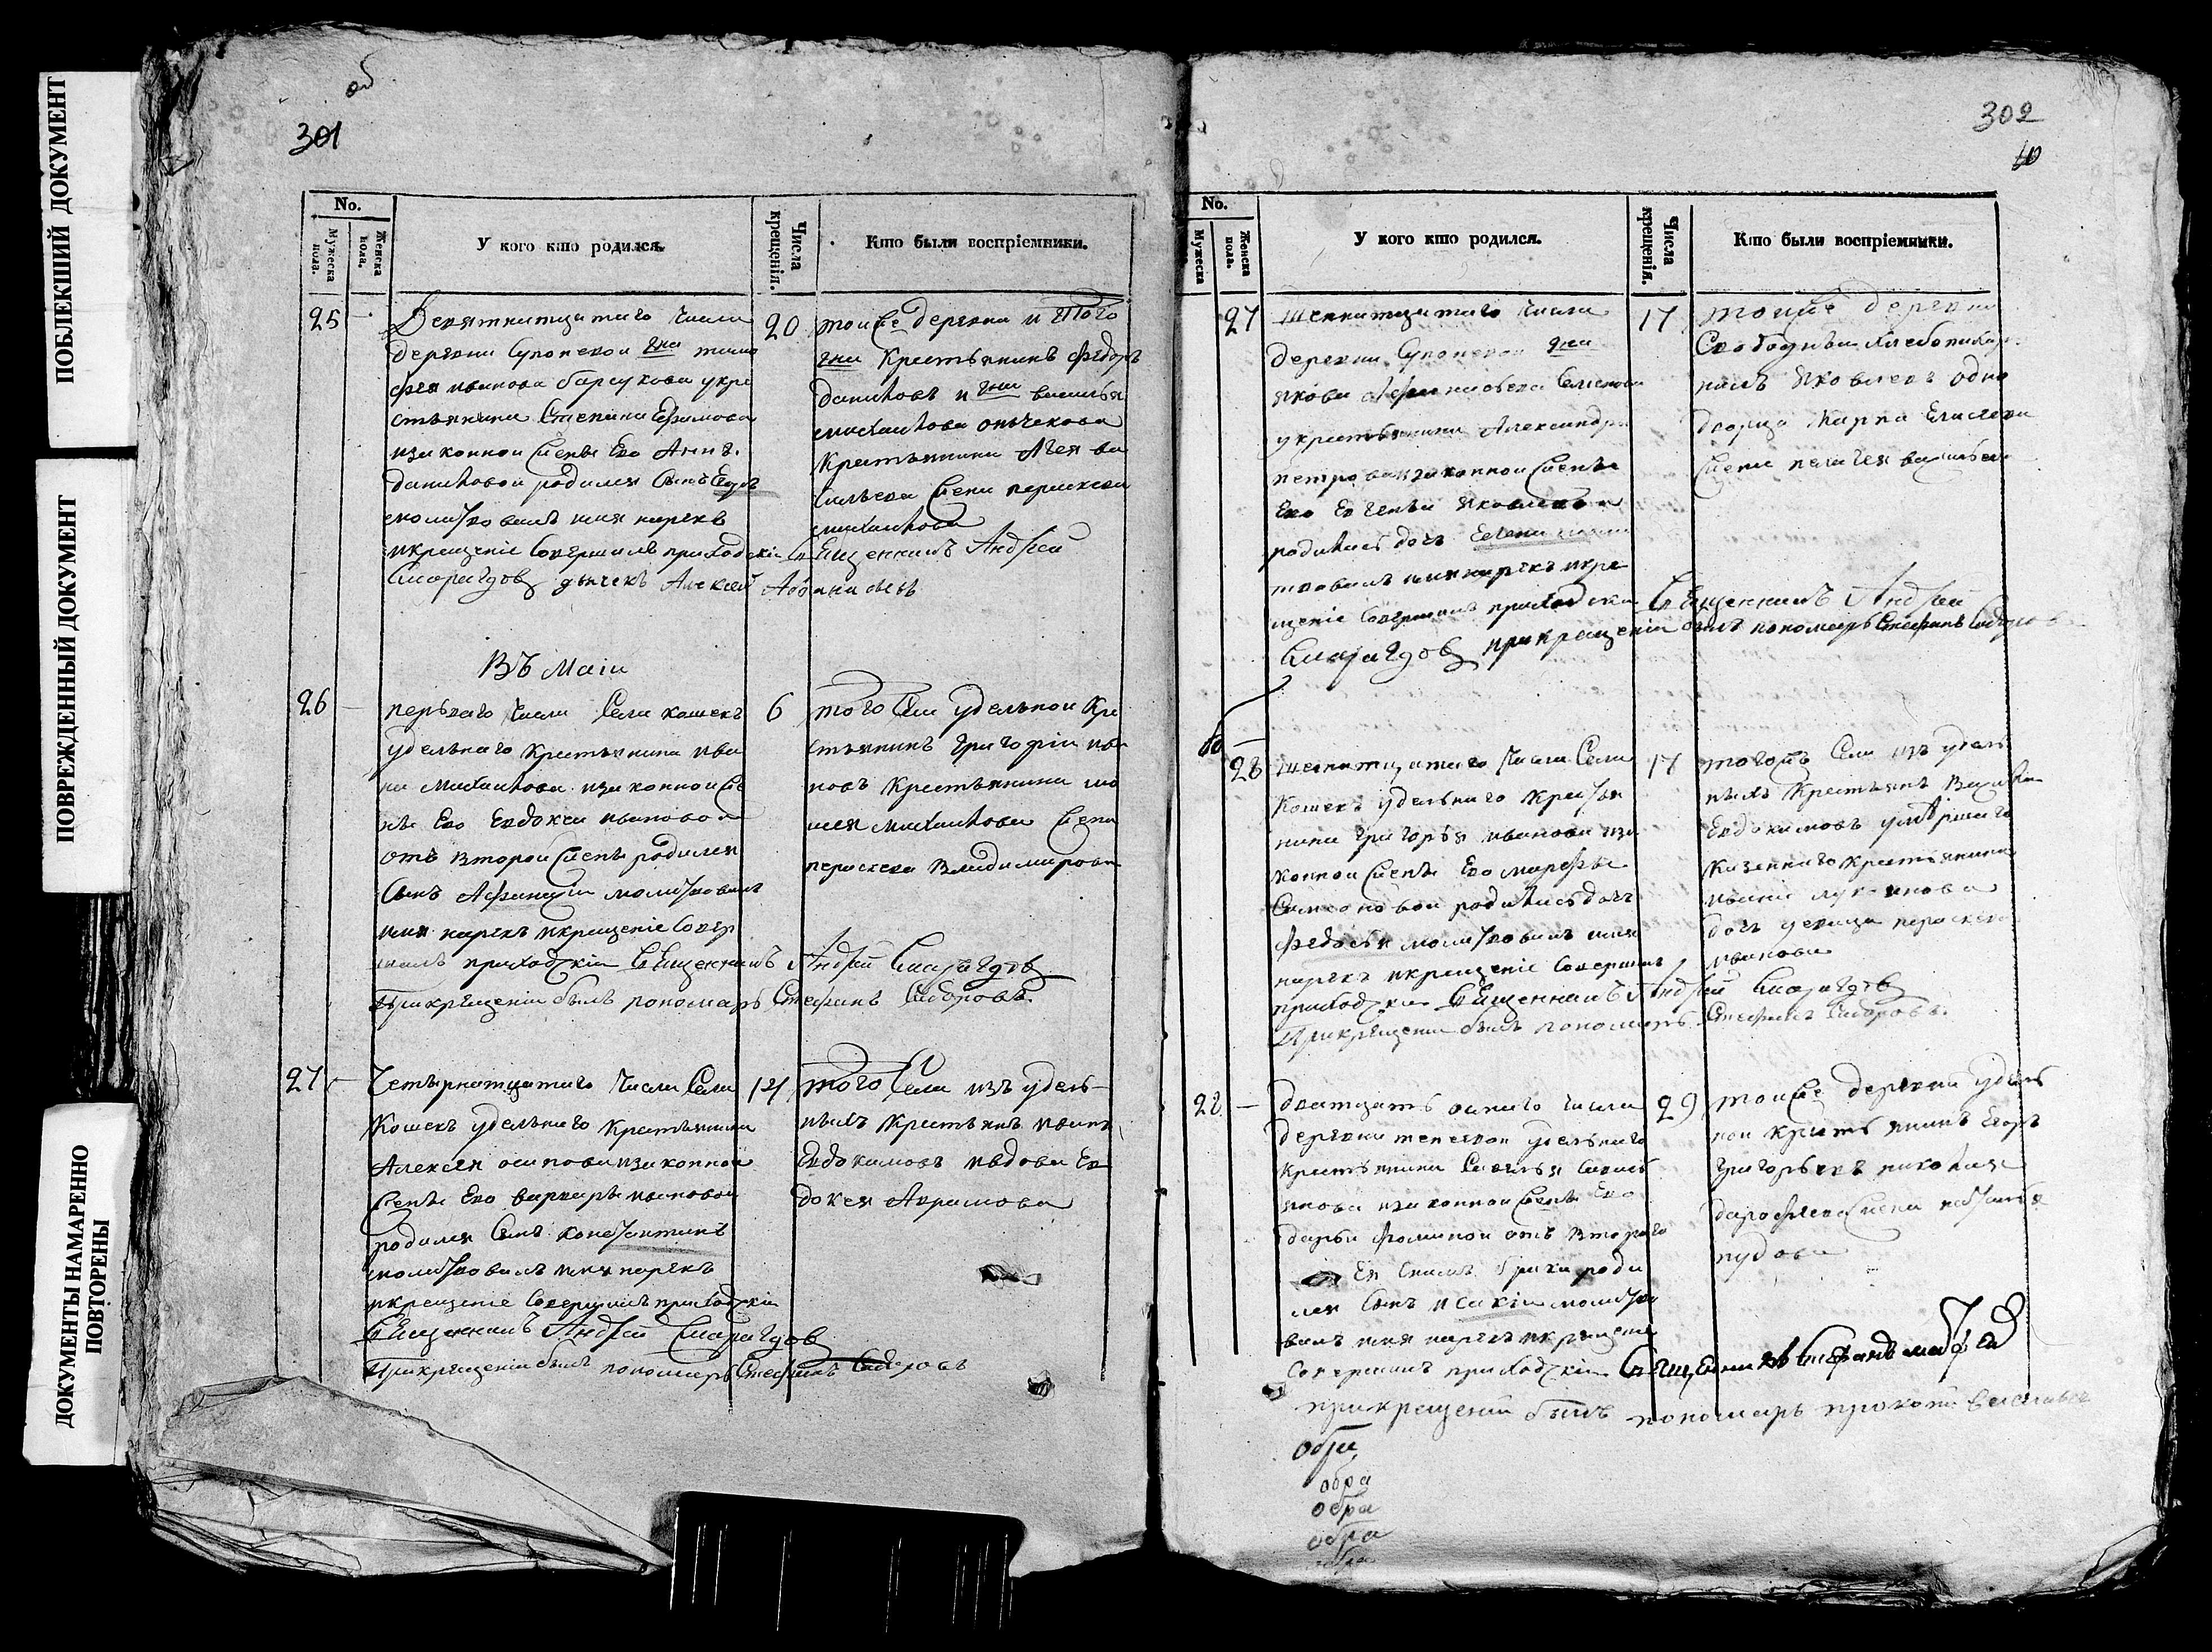 ПОБЛЕКШИЙ ДОКУМЕНТ
ПОВРЕЖДЕННЫЙ ДОКУМЕНТ
ДОКУМЕНТЫ НАМАРЕННО
ПОВТОРЕНЫ
об
301
No.
Мужеска пола.
Женска пола.
У кого кто родился.
Числа крещенія.
Кто были воспріемники.
25
Девятнатцатаго числа
деревни гна тимо
фея иванова барсукова у кре
стьянина Степана Ефимова
и законной жены Ево Анны
Даниловой родился сынъ Егоръ
молитвовалъ имя нарекъ
и крещеніе Совершилъ приходскій Священникъ Андрей
Смарагдов дьячекъ Алексей
20
тойже деревни и того
гна Крестьянинъ Федоръ
Даниловъ и гна василья
михайлова
Крестьянина Агея ва
сильева жена параскева
михайлова
Въ Маіи
26
перваго числа Села кошекъ
удельнаго крестьянина ива
на Михайлова и законной же
ны Ево Евдокеи ивановой
отъ второй жены родился
Сынъ Афанасій молитвовалъ
имя нарекъ и крещеніе Совер
шилъ приходскій Священникъ Андрей Смарагдов
При крещеніи былъ пономарь Стефанъ Сидоровъ
6
того Села удельной Кре
стьянинъ Григорій ива
новъ Крестьянина
михайлова жена
параскева Владимирова
27
Четырнатцатаго числа Села
Кошекъ удельнаго Крестьянина
Алексея осипова и законной
жены Ево варвары ивановой
родился Сынъ константинъ
молитвовалъ имя нарекъ
и крещеніе Совершилъ приходскій
Священникъ Андрей Смарагдов
При крещеніи былъ пономарь Стефанъ Сидоровъ
14
того Села изъ удель
ныхъ крестьянъ иванъ
Евдокимовъ и вдова Ев
докея Абрамова
302
No.
Мужеска
Женска пола.
У кого кто родился.
Числа крещенія.
Кто были воспріемники.
27
Шеснатцатаго числа
деревни гна
якова
у крестьянина Александра
петрова и законной жены
Ево Евгеньи Яковлевой
родилась дочь Елена
имя нарекъ и кре
щеніе Совершилъ приходскій Священникъ Андрей
Смарагдов при крещеніи былъ пономарь Стефанъ Сидоровъ
17
тойже деревни
Яковлевъ одно
дворца Карпа Елисеева
жена пелагея васильева
28
шеснатцатаго числа Села
Кошекъ удельнаго крестья
нина григорья иванова и за
конной жены Ево марфы
Симеоновой родилась дочь
Федосья молитвовалъ имя
нарекъ и крещеніе Совершилъ
приходскій Священникъ Андрей Смарагдов
При крещеніи былъ пономарь Стефанъ Сидоровъ
тогожъ Села изъ удель
ныхъ Крестьянъ
Евдокимовъ умершаго
казеннаго крестьянина
ивана
дочь девица параскева
иванова
28
дватцать осмаго числа
деревни удельнаго
крестьянина
и законной жены Ево
дарьи фоминой отъ втораго
Ея съ нимъ брака роди
лся Сынъ исакій молитво
валъ имя нарекъ и крещеніе
Совершилъ приходскій Священникъ
при крещеніи былъ пономарь прокопій васильевъ
29
тойже деревни удель
ной крестьянинъ Егоръ
Григорьевъ николая
дорофеева жена наталья
обра
обра
обра
обра